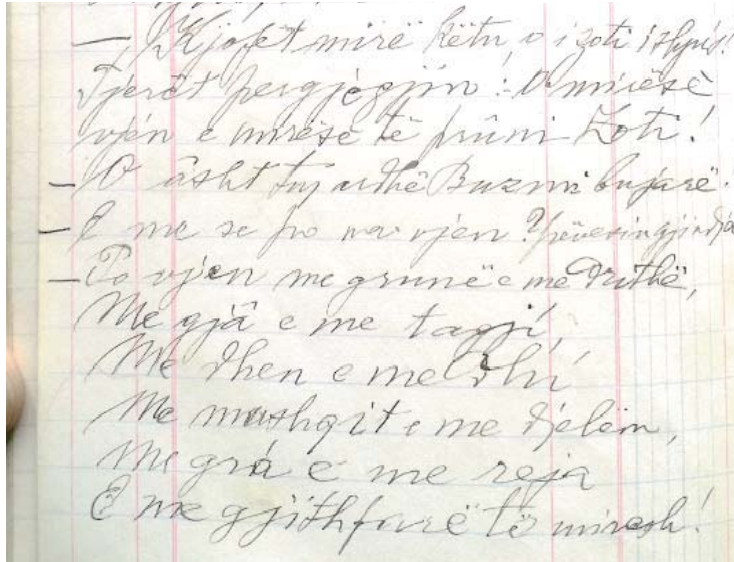 — Kjofët mirë këtu o i zoti i shpis!
Tjerët pergjegjin: O mirësë
vjen e mirësë të pruni Zoti!
— O âsht tuj ardhë Buzmi bujarë!
— E me se po na vjen? pëvesin gjindja
— Po vjen me grunë e me drithë,
Me gjâ e me tagjí,
Me dhen e me dhí
Me mushqit e me djelëm,
Me grá e me reja
E me gjithfarë të mirash!